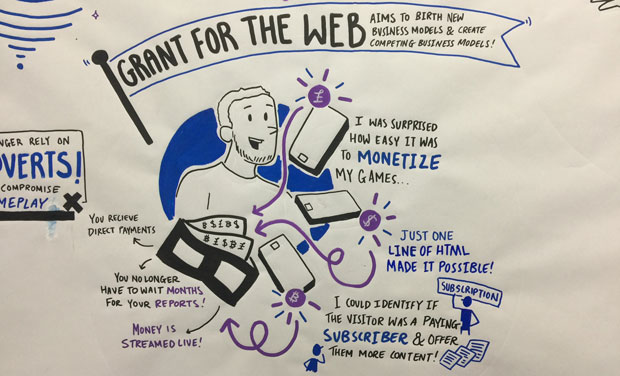 GRANT FOR THE WEB
AIMS TO BIRTH NEW
BUSINESS MODELS & CREATE
COMPETING BUSINESS MODELS!
NGER RELY ON
VERTS!
COMPROMISE
MEPLAY
£
I WAS SURPRISED
HOW EASY IT WAS
TO MONETIZE
MY GAMES...
$
JUST ONE
LINE OF HTML
MADE IT POSSIBLE!
YOU RECIEVE
DIRECT PAYMENTS
YOU NO LONGER
HAVE TO WAIT MONTHS
FOR YOUR REPORTS!
MONEY IS
STREAMED LIVE!
₿
SUBSCRIPTION
I COULD IDENTIFY IF
THE VISITOR WAS A PAYING
SUBSCRIBER & OFFER
THEM MORE CONTENT!